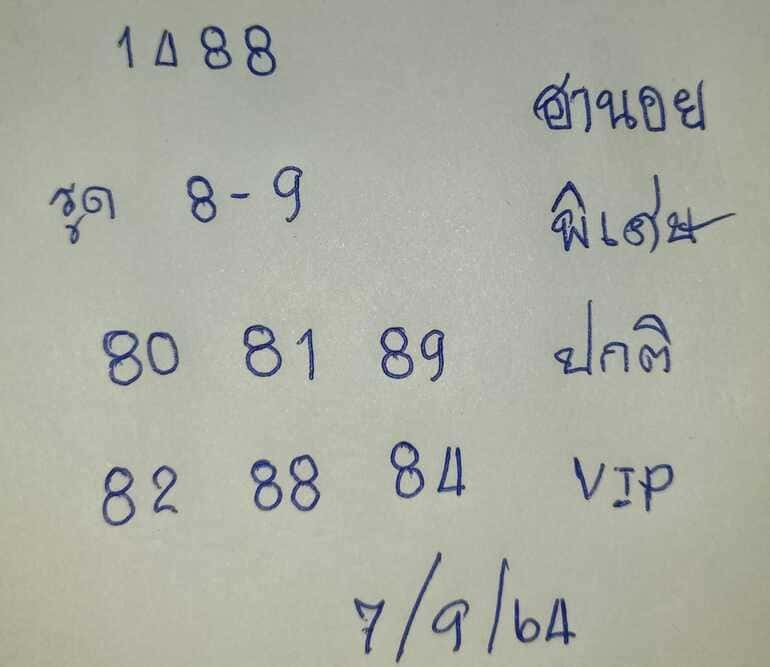 1488
ฮานอย
รูด 8-9
พิเศษ
80 81 89 ปกติ
82 88 84 VIP
7/9/64